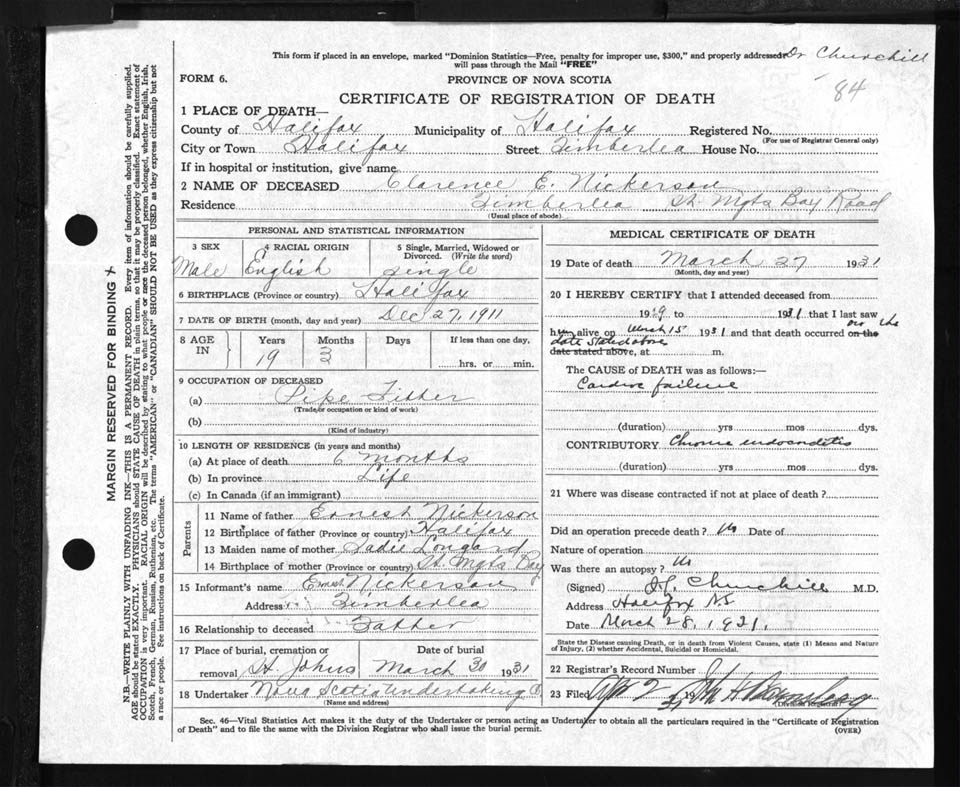 This form if placed in an envelope, marked "Dominion Statistics—Free, penalty for improper use, $300," and properly addressed Dr Churchill
will pass through the Mail "FREE"
FORM 6.
PROVINCE OF NOVA SCOTIA
84
CERTIFICATE OF REGISTRATION OF DEATH
1 PLACE OF DEATH—
County of Halifax Municipality of Halifax Registered No.
(For use of Registrar General only)
City or Town Halifax Street Timberlea House No.
If in hospital or institution, give name
2 NAME OF DECEASED Clarence E. Nickerson
Residence Timberlea St. Mgts Bay Road
(Usual place of abode)
PERSONAL AND STATISTICAL INFORMATION
3 SEX 4 RACIAL ORIGIN 5 Single, Married, Widowed or Divorced. (Write the word)
Male English Single
6 BIRTHPLACE (Province or country) Halifax
7 DATE OF BIRTH (month, day and year) Dec 27, 1911
8 AGE IN Years Months Days If less than one day,
19 3 hrs. or min.
9 OCCUPATION OF DECEASED
(a) Pipe Fitter
(Trade, or occupation or kind of work)
(b)
(Kind of industry)
10 LENGTH OF RESIDENCE (in years and months)
(a) At place of death 6 months
(b) In province Life
(c) In Canada (if an immigrant)
Parents
11 Name of father Ernest Nickerson
12 Birthplace of father (Province or country) Halifax
13 Maiden name of mother Sadie Longard
14 Birthplace of mother (Province or country) St. Mgts Bay
15 Informant's name Ernest Nickerson
Address Timberlea
16 Relationship to deceased Father
17 Place of burial, cremation or removal Date of burial
St. Johns March 30 1931
18 Undertaker Nova Scotia Undertaking Co
(Name and address)
MEDICAL CERTIFICATE OF DEATH
19 Date of death March 27 1931
(Month, day and year)
20 I HEREBY CERTIFY that I attended deceased from
1929 to 1931 that I last saw
him alive on March 15 1931 and that death occurred on the
on the
date stated above
date stated above, at m.
The CAUSE of DEATH was as follows:—
Cardiac failure
(duration) yrs mos dys.
CONTRIBUTORY Chronic endocarditis
(duration) yrs mos dys.
21 Where was disease contracted if not at place of death?
Did an operation precede death? No Date of
Nature of operation
Was there an autopsy? No
(Signed) Churchill M.D.
Address Halifax N.S
Date March 28, 1931.
State the Disease causing Death, or in death from Violent Causes, state (1) Means and Nature
of Injury, (2) whether Accidental, Suicidal or Homicidal.
22 Registrar's Record Number
23 Filed Apr 2 1931
(Division Registrar)
Sec. 46—Vital Statistics Act makes it the duty of the Undertaker or person acting as Undertaker to obtain all the particulars required in the "Certificate of Registration
of Death" and to file the same with the Division Registrar who shall issue the burial permit.
(OVER)
MARGIN RESERVED FOR BINDING
N.B.—WRITE PLAINLY WITH UNFADING INK—THIS IS A PERMANENT RECORD. Every item of information should be carefully supplied.
AGE should be stated EXACTLY. PHYSICIANS should STATE CAUSE OF DEATH in plain terms, so that it may be properly classified. Exact statement of
OCCUPATION is very important. RACIAL ORIGIN will be described by stating to what people or race the deceased person belonged, whether English, Irish,
Scotch, French, German, Russian, Ruthenian, etc. The terms "AMERICAN" or "CANADIAN" SHOULD NOT BE USED as they express citizenship but not
a race or people. See instructions on back of Certificate.